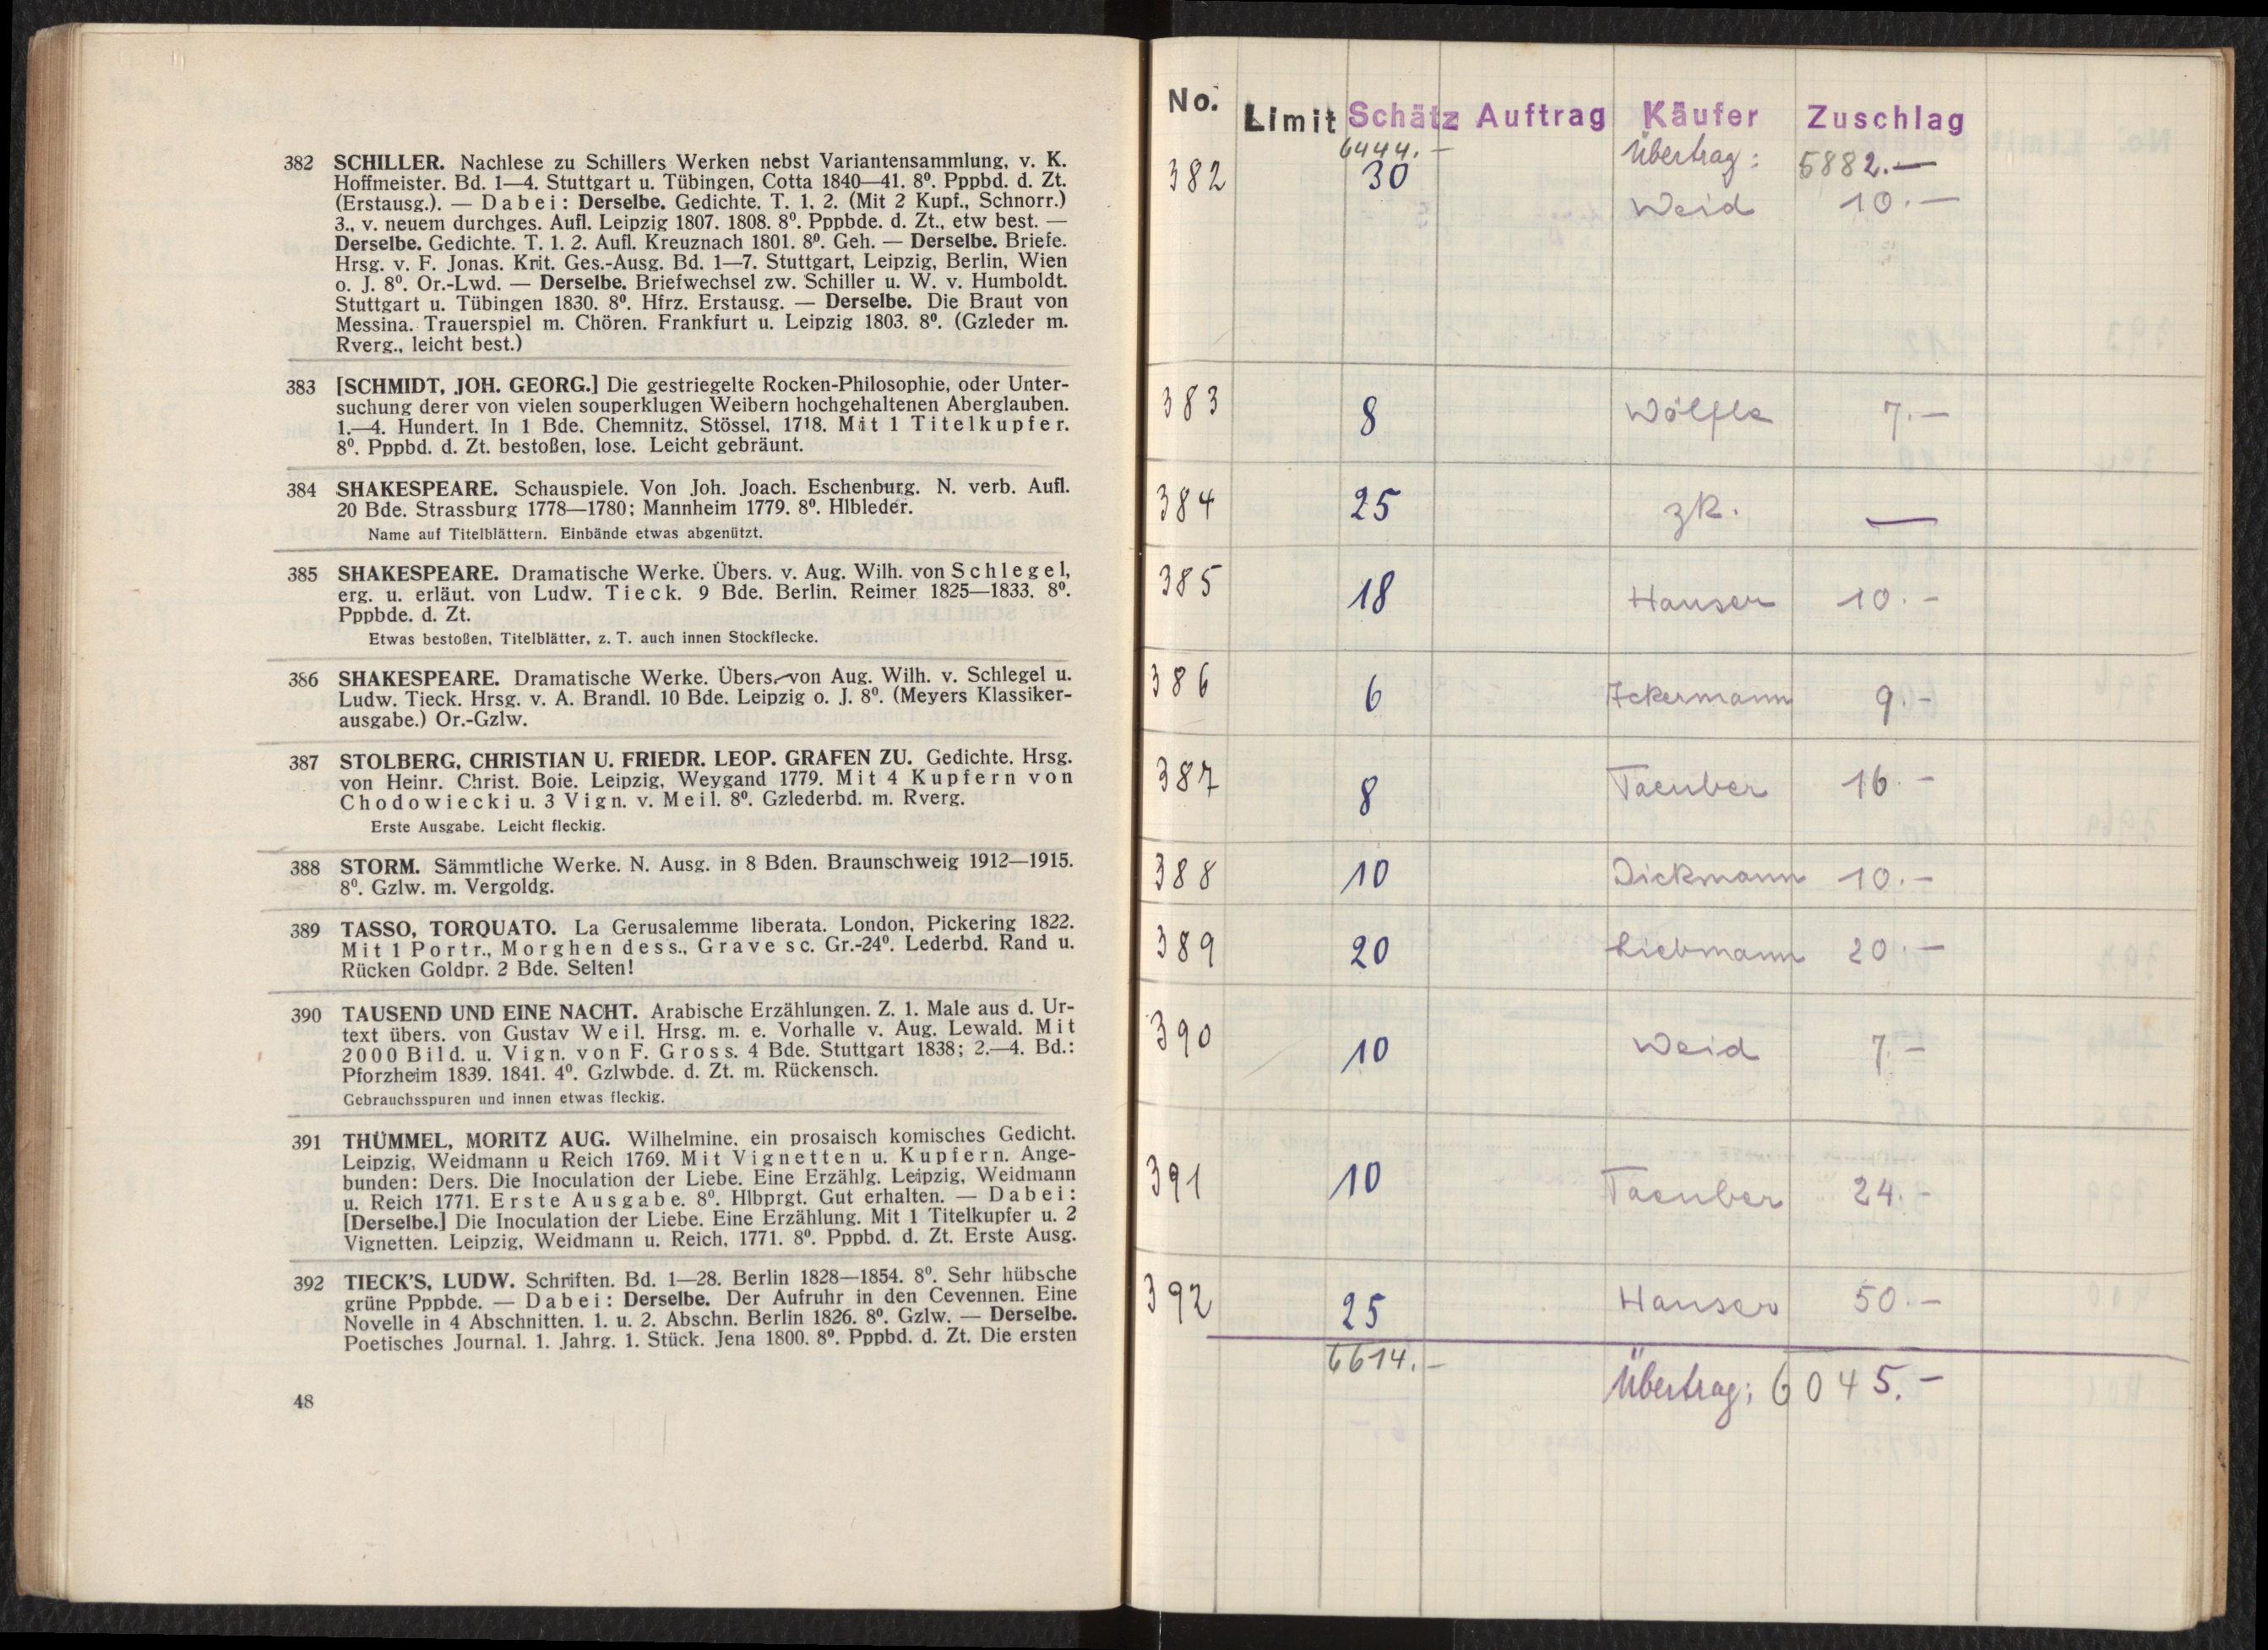 382 SCHILLER. Nachlese zu Schillers Werken nebst Variantensammlung, v. K.
Hoffmeister. Bd. 1—4. Stuttgart u. Tübingen, Cotta 1840—41. 8⁰. Pppbd. d. Zt.
(Erstausg.). — Dabei: Derselbe. Gedichte. T. 1, 2. (Mit 2 Kupf., Schnorr.)
3., v. neuem durchges. Aufl. Leipzig 1807. 1808. 8⁰. Pppbde. d. Zt., etw best. —
Derselbe. Gedichte. T. 1. 2. Aufl. Kreuznach 1801. 8⁰. Geh. — Derselbe. Briefe.
Hrsg. v. F. Jonas. Krit. Ges.-Ausg. Bd. 1—7. Stuttgart, Leipzig, Berlin, Wien
o. J. 8⁰. Or.-Lwd. — Derselbe. Briefwechsel zw. Schiller u. W. v. Humboldt.
Stuttgart u. Tübingen 1830. 8⁰. Hfrz. Erstausg. — Derselbe. Die Braut von
Messina. Trauerspiel m. Chören. Frankfurt u. Leipzig 1803. 8⁰. (Gzleder m.
Rverg., leicht best.)
383 [SCHMIDT, JOH. GEORG.] Die gestriegelte Rocken-Philosophie, oder Unter-
suchung derer von vielen souperklugen Weibern hochgehaltenen Aberglauben.
1.—4. Hundert. In 1 Bde. Chemnitz, Stössel, 1718. Mit 1 Titelkupfer.
8⁰. Pppbd. d. Zt. bestoßen, lose. Leicht gebräunt.
384 SHAKESPEARE. Schauspiele. Von Joh. Joach. Eschenburg. N. verb. Aufl.
20 Bde. Strassburg 1778—1780; Mannheim 1779. 8⁰. Hlbleder.
Name auf Titelblättern. Einbände etwas abgenützt.
385 SHAKESPEARE. Dramatische Werke. Übers. v. Aug. Wilh. von Schlegel,
erg. u. erläut. von Ludw. Tieck. 9 Bde. Berlin, Reimer 1825—1833. 8⁰.
Pppbde. d. Zt.
Etwas bestoßen, Titelblätter, z. T. auch innen Stockflecke.
386 SHAKESPEARE. Dramatische Werke. Übers. von Aug. Wilh. v. Schlegel u.
Ludw. Tieck. Hrsg. v. A. Brandl. 10 Bde. Leipzig o. J. 8⁰. (Meyers Klassiker-
ausgabe.) Or.-Gzlw.
387 STOLBERG, CHRISTIAN U. FRIEDR. LEOP. GRAFEN ZU. Gedichte. Hrsg.
von Heinr. Christ. Boie. Leipzig, Weygand 1779. Mit 4 Kupfern von
Chodowiecki u. 3 Vign. v. Meil. 8⁰. Gzlederbd. m. Rverg.
Erste Ausgabe. Leicht fleckig.
388 STORM. Sämmtliche Werke. N. Ausg. in 8 Bden. Braunschweig 1912—1915.
8⁰. Gzlw. m. Vergoldg.
389 TASSO, TORQUATO. La Gerusalemme liberata. London, Pickering 1822.
Mit 1 Portr., Morghen dess., Grave sc. Gr.-24⁰. Lederbd. Rand u.
Rücken Goldpr. 2 Bde. Selten!
390 TAUSEND UND EINE NACHT. Arabische Erzählungen. Z. 1. Male aus d. Ur-
text übers. von Gustav Weil. Hrsg. m. e. Vorhalle v. Aug. Lewald. Mit
2000 Bild. u. Vign. von F. Gross. 4 Bde. Stuttgart 1838; 2.—4. Bd.:
Pforzheim 1839. 1841. 4⁰. Gzlwbde. d. Zt. m. Rückensch.
Gebrauchsspuren und innen etwas fleckig.
391 THÜMMEL, MORITZ AUG. Wilhelmine, ein prosaisch komisches Gedicht.
Leipzig, Weidmann u Reich 1769. Mit Vignetten u. Kupfern. Ange-
bunden: Ders. Die Inoculation der Liebe. Eine Erzählg. Leipzig, Weidmann
u. Reich 1771. Erste Ausgabe. 8⁰. Hlbprgt. Gut erhalten. — Dabei:
[Derselbe.] Die Inoculation der Liebe. Eine Erzählung. Mit 1 Titelkupfer u. 2
Vignetten. Leipzig, Weidmann u. Reich, 1771. 8⁰. Pppbd. d. Zt. Erste Ausg.
392 TIECK'S, LUDW. Schriften. Bd. 1—28. Berlin 1828—1854. 8⁰. Sehr hübsche
grüne Pppbde. — Dabei: Derselbe. Der Aufruhr in den Cevennen. Eine
Novelle in 4 Abschnitten. 1. u. 2. Abschn. Berlin 1826. 8⁰. Gzlw. — Derselbe.
Poetisches Journal. 1. Jahrg. 1. Stück. Jena 1800. 8⁰. Pppbd. d. Zt. Die ersten
48
No. Limit Schätz Auftrag Käufer Zuschlag
6444.— Übertrag: 5882.—
382 30 Weid 10.—
383 8 Wölfle 7.—
384 25 zk. —
385 18 Hauser 10.—
386 6 Ackermann 9.—
387 8 Taeuber 16.—
388 10 Dickmann 10.—
389 20 Liebmann 20.—
390 10 Weid 7.—
391 10 Taeuber 24.—
392 25 Hauser 50.—
6614.— Übertrag: 6045.—